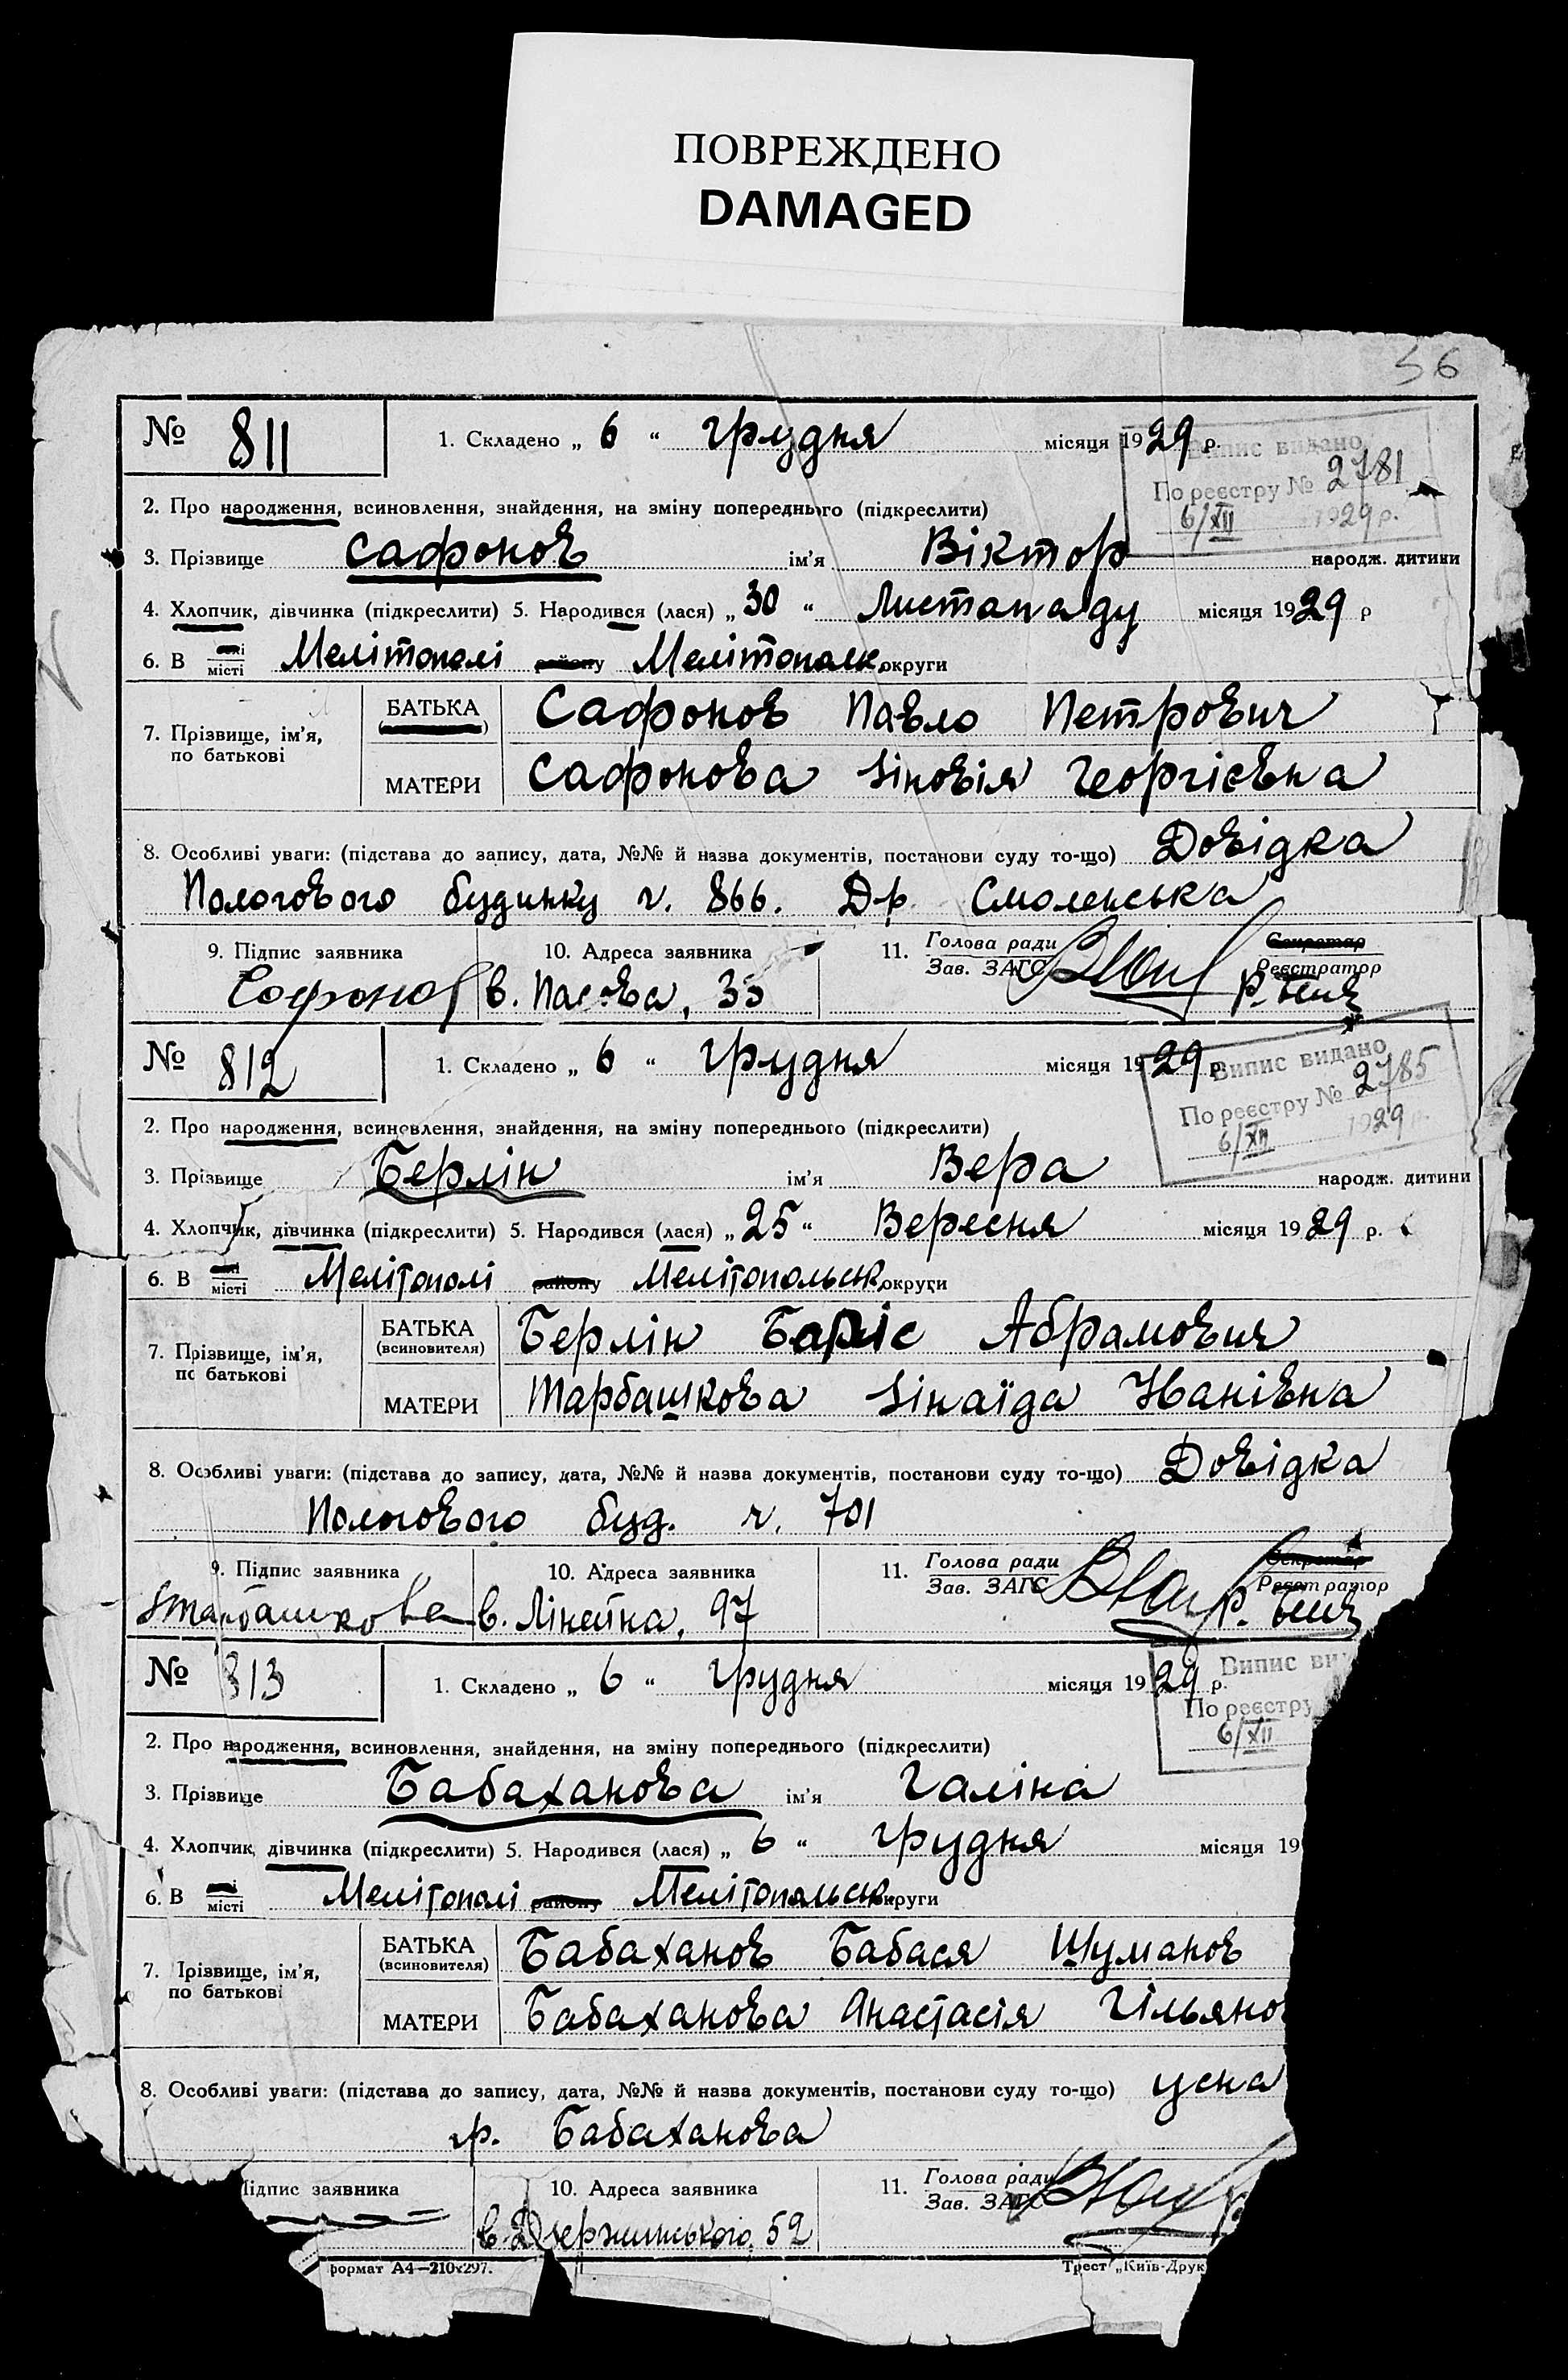 ПОВРЕЖДЕНО
DAMAGED
56
№ 811 1. Складено „ 6 “ грудня місяця 1929 р.
Випис видано
По реєстру № 2781
6/XII 1929 р.
2. Про народження, всиновлення, знайдення, на зміну попереднього (підкреслити)
3. Прізвище Сафонов ім’я Віктор народж. дитини
4. Хлопчик, дівчинка (підкреслити) 5. Народився (лася) „ 30 “ Листопаду місяця 1929 р
6. В місті Мелітополі району Мелітопольськ. округи
7. Прізвище, ім’я, по батькові
БАТЬКА Сафонов Павло Петрович
МАТЕРИ Сафонова Зіновія Георгієвна
8. Особливі уваги: (підстава до запису, дата, №№ й назва документів, постанови суду то-що) Довідка
Пологового будинку ч. 866. Др. Смоленська
9. Підпис заявника 10. Адреса заявника 11. Голова ради Секретар
Зав. ЗАГС Реєстратор
Сафонов в. 35
№ 812 1. Складено „ 6 “ грудня місяця 1929 р.
Випис видано
По реєстру № 2785
6/XII 1929 р.
2. Про народження, всиновлення, знайдення, на зміну попереднього (підкреслити)
3. Прізвище Берлін ім’я Вера народж. дитини
4. Хлопчик, дівчинка (підкреслити) 5. Народився (лася) „ 25 “ Вересня місяця 1929 р.
6. В місті Мелітополі району Мелітопольськ. округи
7. Прізвище, ім’я, по батькові
БАТЬКА (всиновителя) Берлін Боріс Абрамович
МАТЕРИ Тарбашкова Зінаїда Іванівна
8. Особливі уваги: (підстава до запису, дата, №№ й назва документів, постанови суду то-що) Довідка
Пологового буд. ч. 701
9. Підпис заявника 10. Адреса заявника 11. Голова ради Секретар
Зав. ЗАГС Реєстратор
Зтарбашкова в. Лінейна, 97
№ 813 1. Складено „ 6 “ грудня місяця 1929 р.
Випис ви
По реєстру
6/XII
2. Про народження, всиновлення, знайдення, на зміну попереднього (підкреслити)
3. Прізвище Бабаханова ім’я Галіна
4. Хлопчик, дівчинка (підкреслити) 5. Народився (лася) „ 6 “ грудня місяця 19
6. В місті Мелітополі району Мелітопольськ. округи
7. Прізвище, ім’я, по батькові
БАТЬКА (всиновителя) Бабаханов Бабася Шуманов
МАТЕРИ Бабаханова Анастасія Гільянов
8. Особливі уваги: (підстава до запису, дата, №№ й назва документів, постанови суду то-що) усна
гр. Бабаханова
Підпис заявника 10. Адреса заявника 11. Голова ради
Зав. ЗАГС
в. Дзержинського, 52
формат А4—210х297. Трест „Київ-Друк